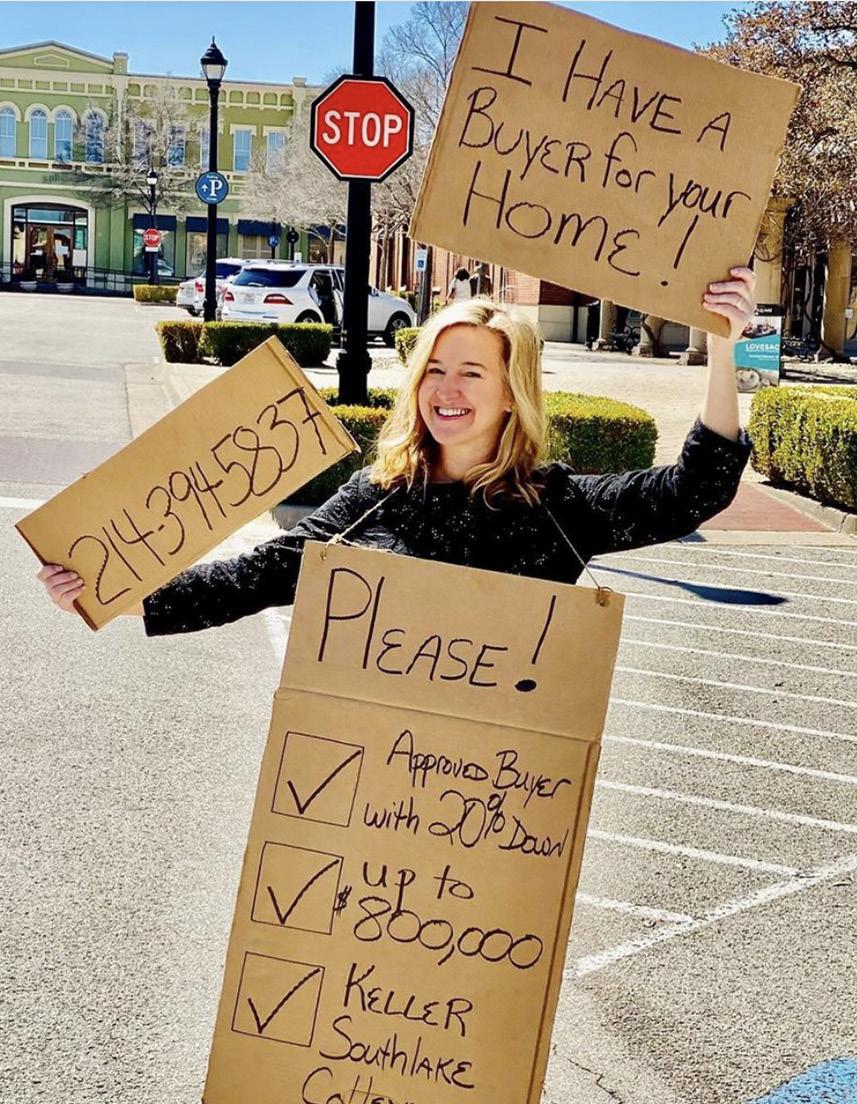 I HAVE A
BUYER for your
HOME!
STOP
P
STOP
LOVESAC
214-394-5837
PLEASE!
APPROVED BUYER
with 20% DOWN
UP to
$800,000
KELLER
SouthLAKE